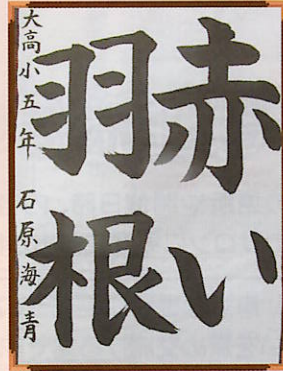 赤い
羽根
大高小五年 石原海青